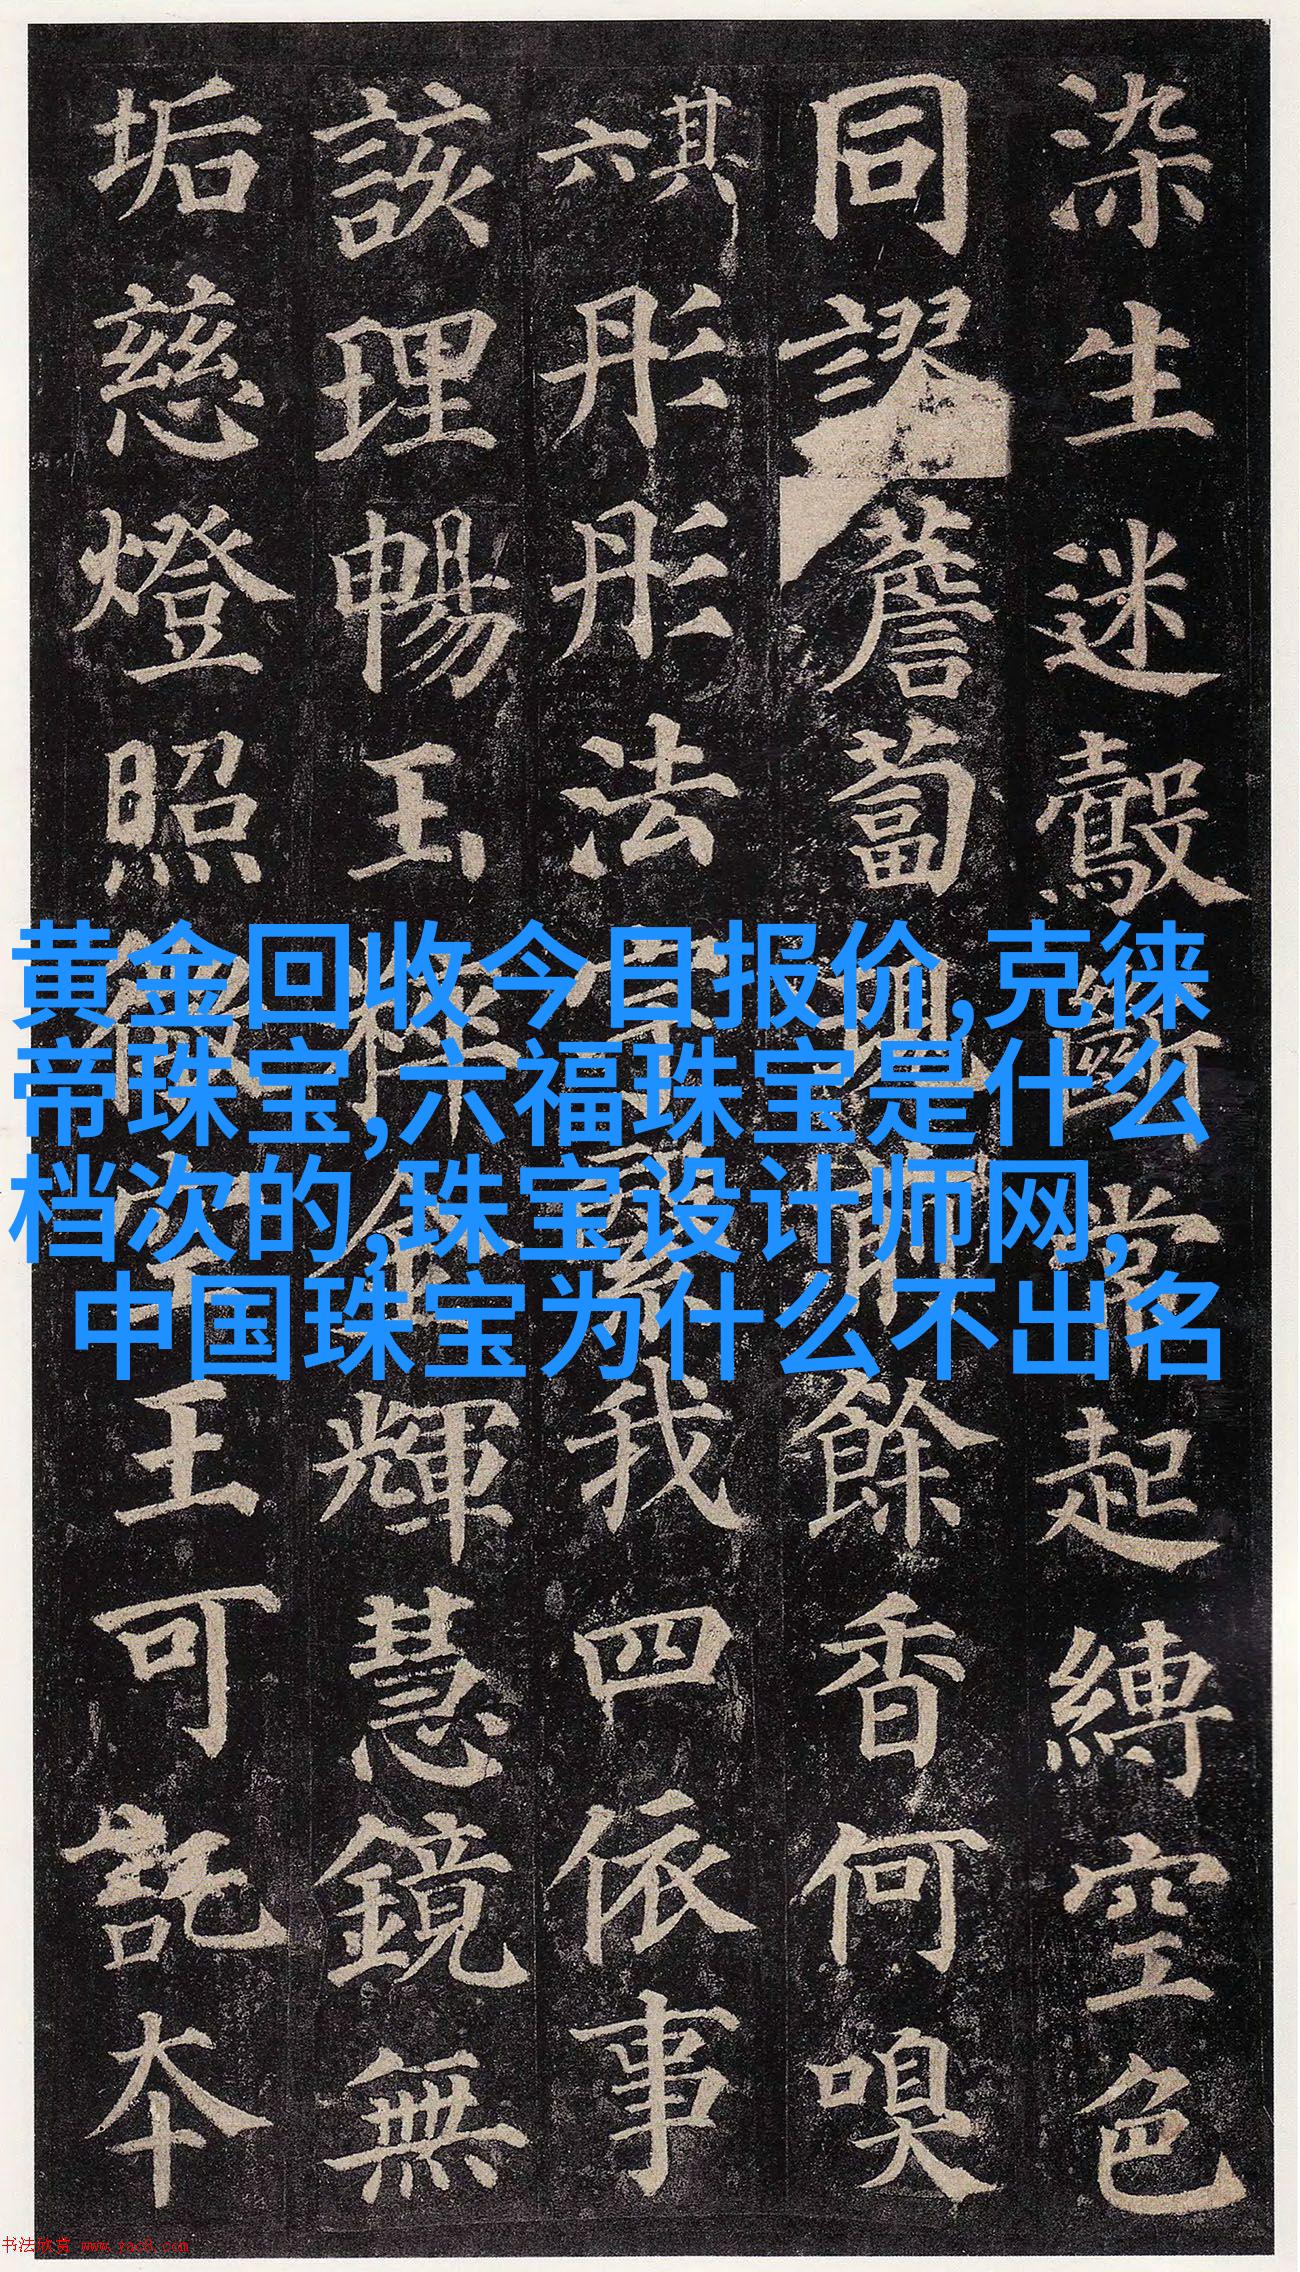 染生迷鷇斷常起縛空色
同謬薝蔔現餘香何嗅
其六彤彤法宇繄我四依事
該理暢玉粹金輝慧鏡無
垢慈燈照微空王可託本
黄金回收今日报价,克徕
帝珠宝,六福珠宝是什么
档次的,珠宝设计师网,
中国珠宝为什么不出名
书法欣赏 www.yac8.com